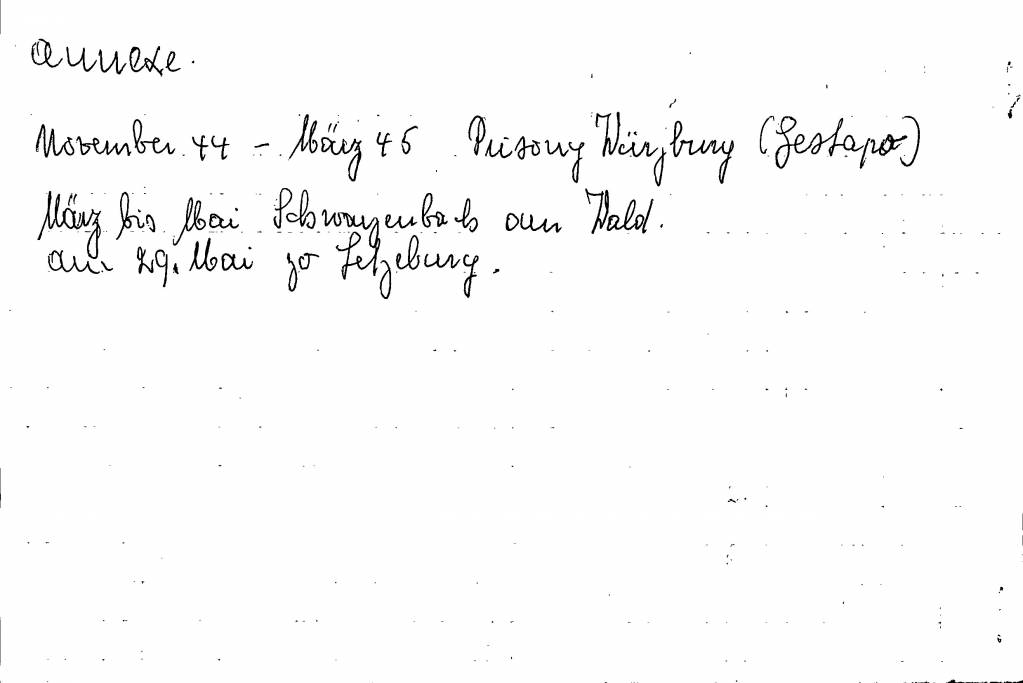 Annexe.
November 44 - März 45 Prisong Würzburg (Gestapo)
März bis Mai Schwarzenbach am Wald.
am 29. Mai zo Letzeburg.